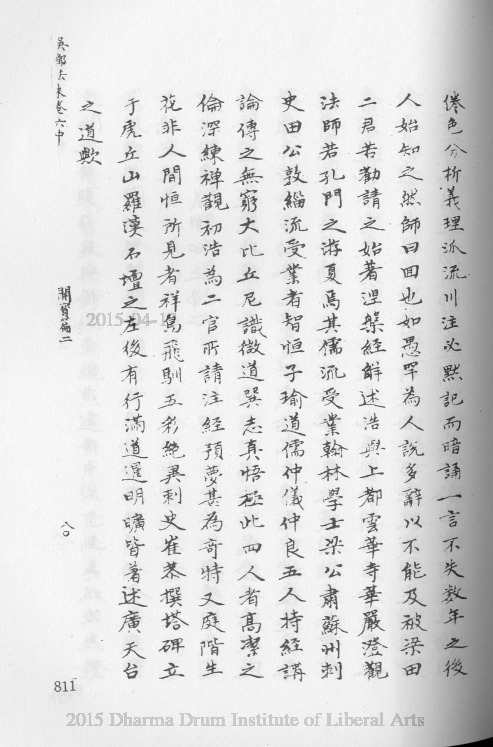 倦色分析義理派流川注必默記而暗誦一言不失数年之後
人始知之然師曰回也如愚罕為人說多辭以不能及被梁田
二君苦勸請之始著涅槃經解述浩與上都雲華寺華嚴澄觀
法師若孔門之游夏焉其儒流受業翰林學士梁公肅蘇州刺
史田公敦緇流受業者智恒子瑜道儒仲儀仲良五人持經講
論傳之無窮大比丘尼識微道巽志真悟極此四人者高潔之
倫深練禅觀初浩為二官所請注經預夢甚為奇特又庭階生
花非人間恒所見者祥鳥飛馴五彩絶異刺史崔恭撰塔碑立
于虎丘山羅漢石壇之左後有行滿道暹明曠皆著述廣天台
之道歟
吳郡法乘卷六中
開寶倫二
八〇
811
2015-04-1
2015 Dharma Drum Institute of Liberal Arts